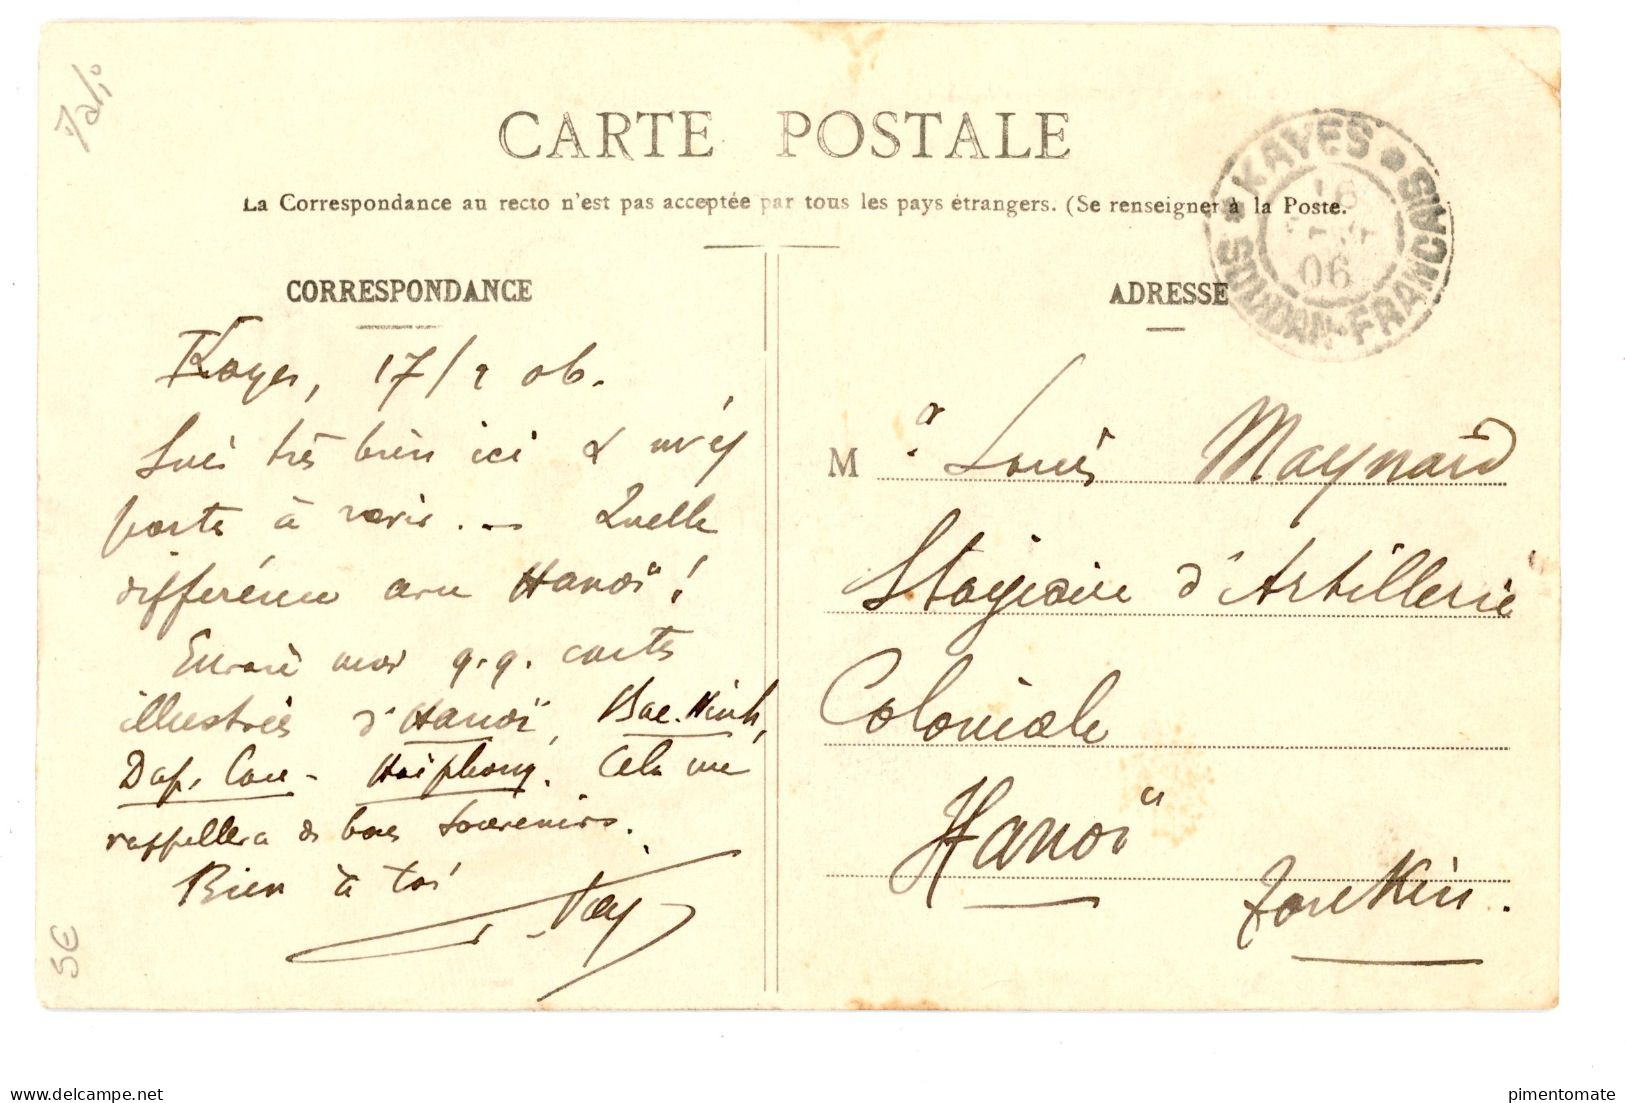 Mali
CARTE POSTALE
La Correspondance au recto n'est pas acceptée par tous les pays étrangers. (Se renseigner à la Poste.
KAYES
SOUDAN-FRANCAIS
16
06
CORRESPONDANCE
Kayes, 17/ 06.
Suis très bien ici & m'y
porte à ravir. — Quelle
différence avec Hanoï!
Envoie moi q.q. cartes
illustrées d'Hanoï, Bac-Ninh,
Dap-Cau - Haïphong. Cela me
rappellera de bons souvenirs.
Bien à toi
5€
ADRESSE
M r Louis Maynard
Stagiaire d'Artillerie
Coloniale
Hanoï
Tonkin.
www.delcampe.net
pimentomate